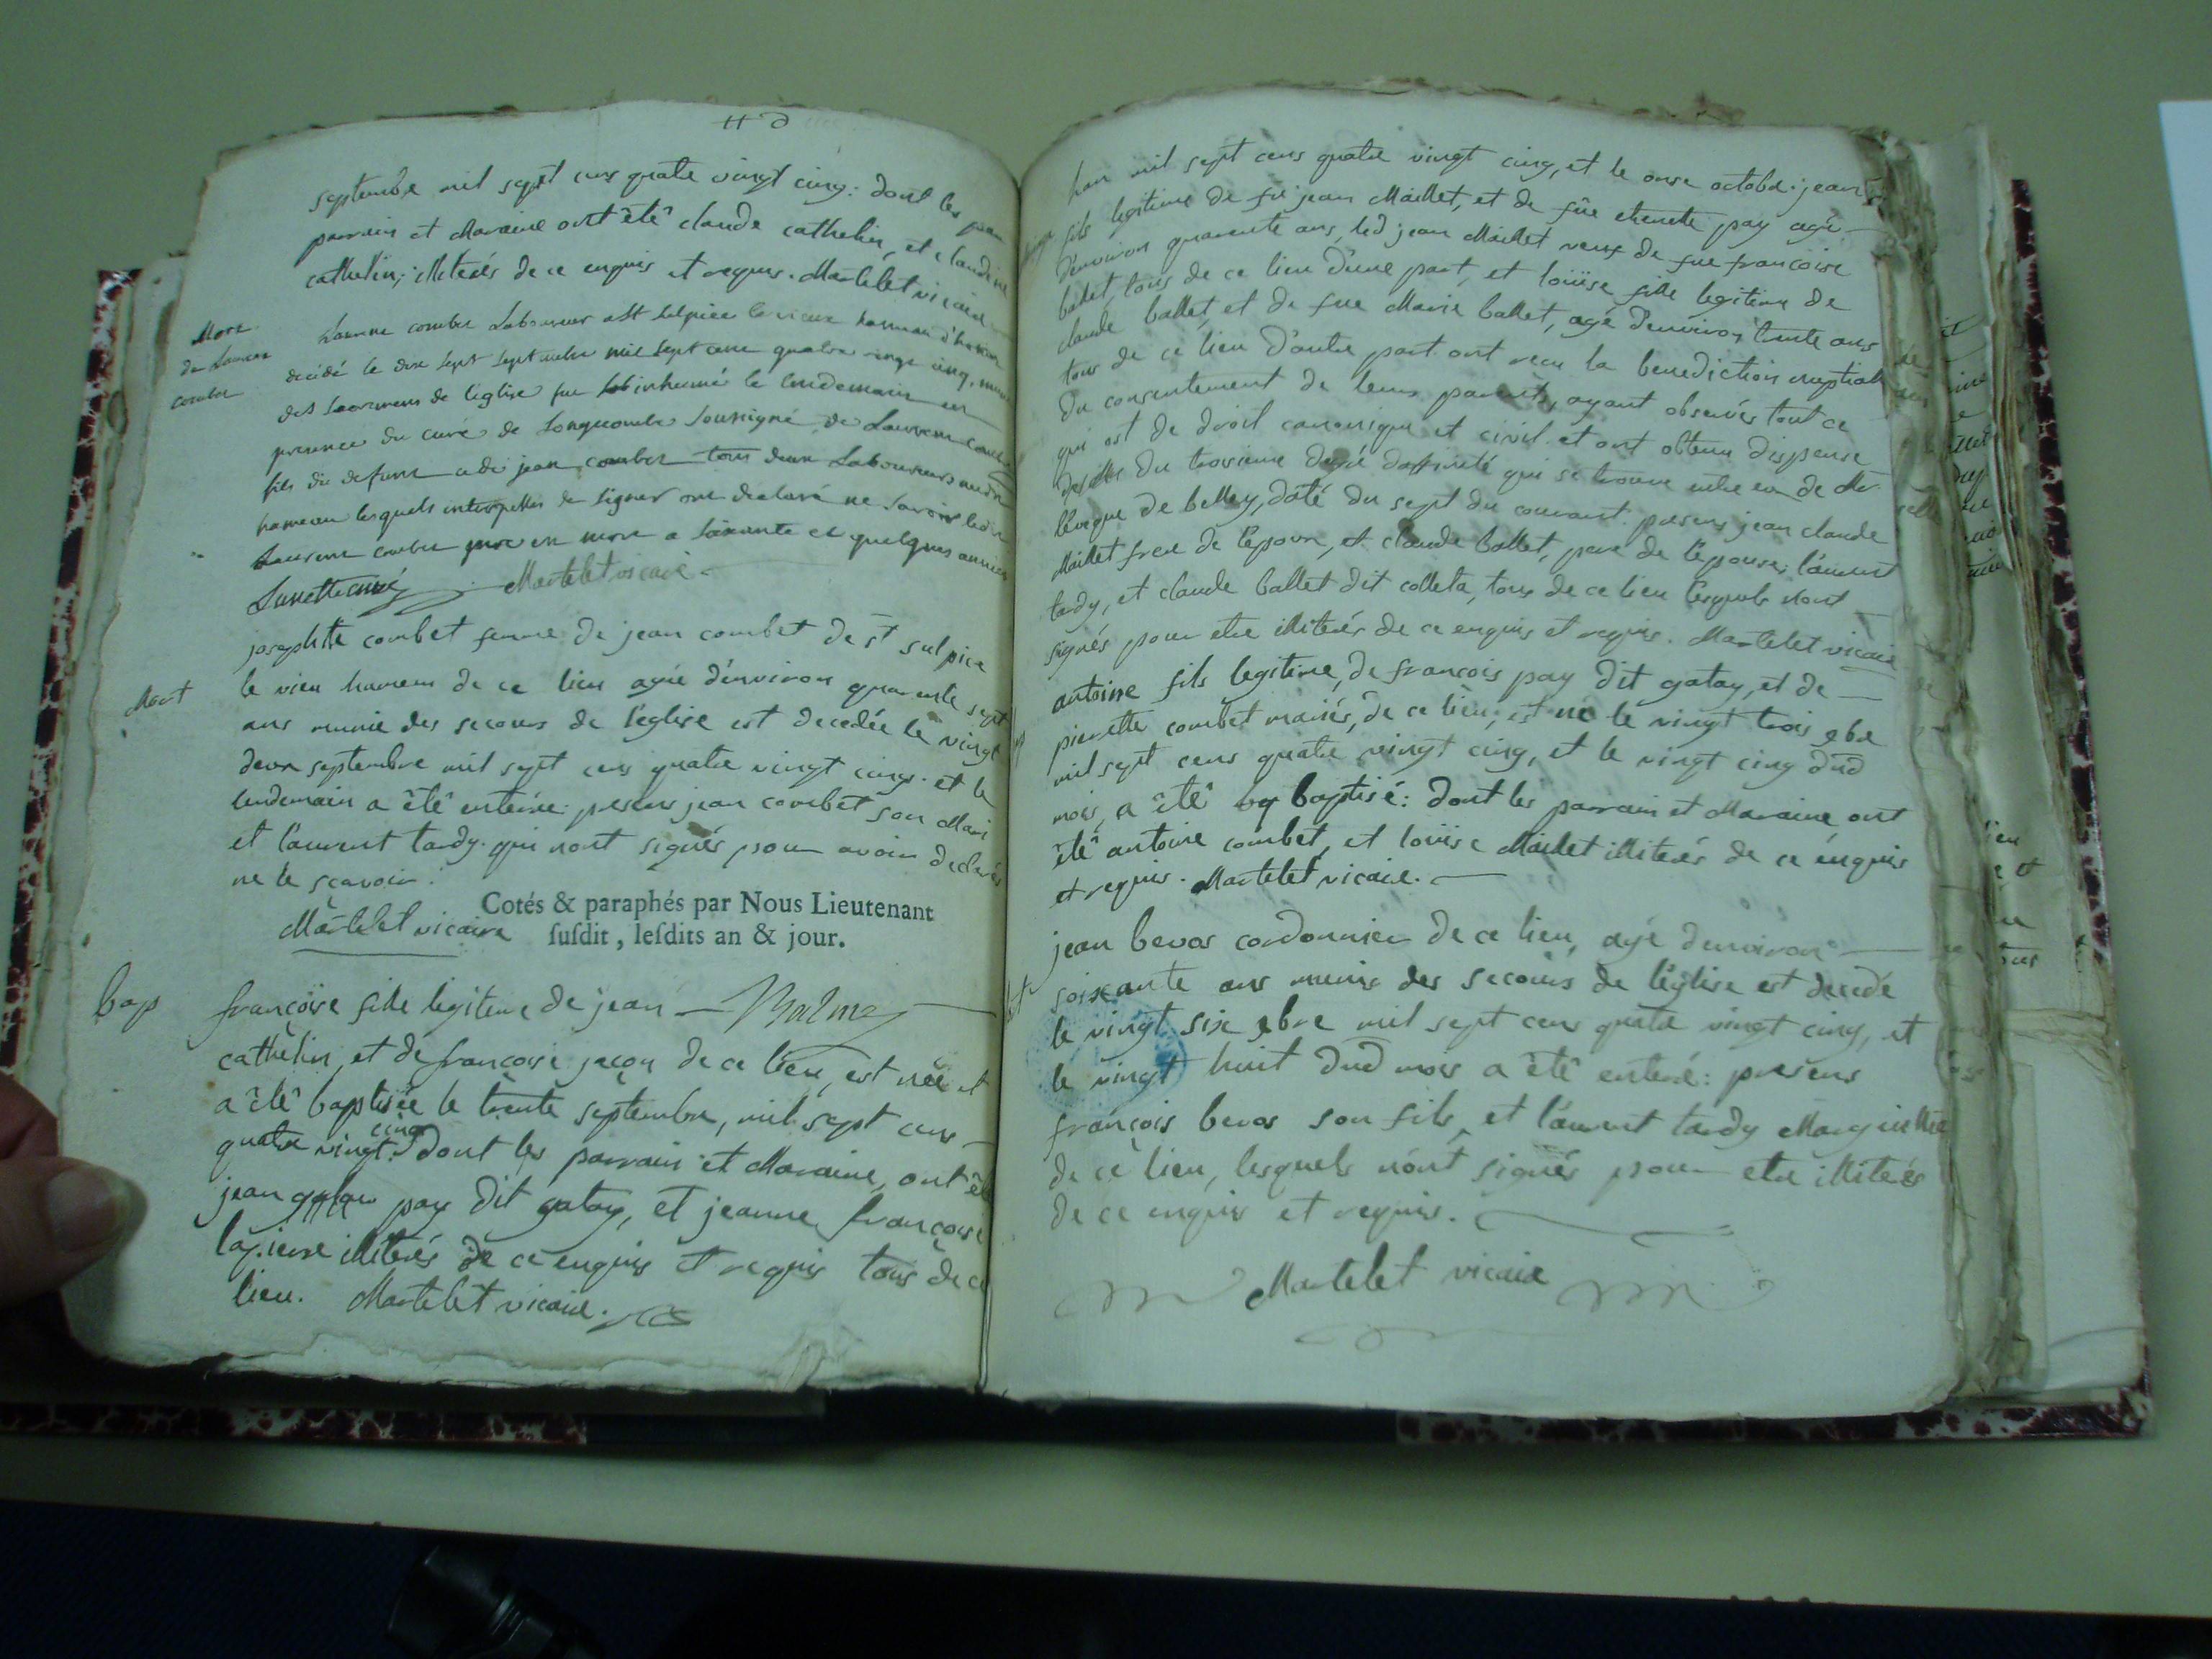 septembre mil sept cens quatre vingt cinq: dont les
parrain et Maraine ont êtê claude cathelin, et claudine
cathelin, illiterés de ce enquis et requis. Martelet vicaire
Mort
de Laurent
combet
Laurent combet Laboureur a St Sulpice le vieux hameau d'
décédé le dix sept septembre mil sept cent quatre vingt cinq, muni
des Sacremens de l'église fut inhumé le lendemain en
presence du curé de Longecombe Soussigné de Laurent combet
fils du defunt et de jean combet tous deux Laboureurs audit
hameau lesquels interpellés de signer ont declaré ne savoir ledit
Laurent combet est mort a soixante et quelques années
curé Martelet vicaire
josephte combet femme de jean combet de st sulpice
Mort
le vieu hameau de ce lieu agée d'environ quarente sept
ans munie des secours de l'église est decedée le vingt
deux septembre mil sept cens quatre vingt cinq. et le
lendemain a êtê enterrée: presens jean combet son Mari
et laurent tardy. qui n'ont signés pour avoir declarés
ne le sçavoir.
Cotés & paraphés par Nous Lieutenant
ſuſdit, leſdits an & jour.
Martelet vicaire
bap
françoise fille legitime de jean — Balme
cathelin, et de françoise jaçon de ce lieu, est née et
a êtê baptisée le trente septembre, mil sept cens
quatre vingt cinq dont les parrain et Maraine, ont êtê
jean pay dit gatay, et jeanne françoise
lapierre illiterés de ce enquis et requis tous de ce
lieu. Martelet vicaire.
lan mil sept cens quatre vingt cinq, et le onze octobre: jean
fils legitime de fû jean Maillet, et de fûe etiennette pay agé
d'environ quarente ans, led jean Maillet veuf de fue françoise
ballet, tous de ce lieu d'une part, et loüise fille legitime de
claude ballet, et de fue Marie ballet, agé d'environ trente ans
tous de ce lieu d'autre part. ont reçu la benediction nuptiale
du consentement de leurs parents, ayant observés tout ce
qui est de droit canonique et civil. et ont obtenu dispense
du troisieme degré d'affinité qui se trouve entre eux de Mr
l'évêque de belley, daté du sept du courant. presens jean claude
Maillet frere de l'epoux, et claude ballet, pere de l'epouse, laurent
tardy, et claude ballet dit colleta, tous de ce lieu lesquels n'ont
signés pour etre illiterés de ce enquis et requis. Martelet vicaire
antoine fils legitime, de françois pay dit gatay, et de
pierrette combet mariés, de ce lieu, est né le vingt trois 8bre
mil sept cens quatre vingt cinq, et le vingt cinq dud
mois, a êtê baptisé: dont les parrain et Maraine, ont
êtê antoine combet, et loüise Maillet illiterés de ce enquis
et requis. Martelet vicaire.
jean bevos cordonnier de ce lieu, agé d'environ
soixante ans muni des secours de l'église est decedé
le vingt six 8bre mil sept cens quatre vingt cinq, et
le vingt huit dud mois a êtê enterré: presens
françois bevos son fils, et laurent tardy Marguillier
de ce lieu, lesquels n'ont signés pour etre illiterés
de ce enquis et requis.
Martelet vicaire